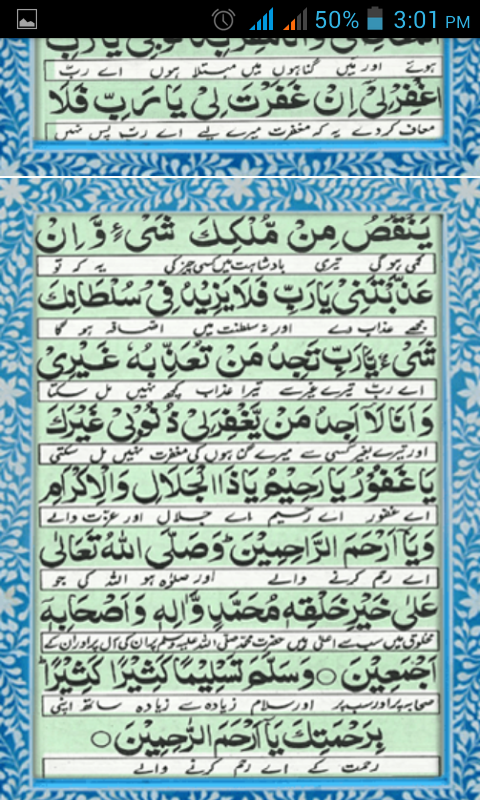 50% 3:01 PM
ہوئے اور میں گناہوں میں مبتلا ہوں اے ربّ
اغْفِرْلِىْ اِنْ غَفَرْتَ لِىْ يَا رَبِّ فَلَا
معاف کر دے یہ کہ مغفرت میرے لیے اے ربّ پس نہیں
يَنْقُصُ مِنْ مُلْكِكَ شَىْءٌ وَّاِنْ
کمی ہو گی تیری بادشاہت میں کسی چیز کی یہ کہ تو
عَذَّبْتَنِىْ يَارَبِّ فَلَا يَزِيْدُ فِىْ سُلْطَانِكَ
مجھے عذاب دے اور نہ سلطنت میں اضافہ ہو گا
شَىْءٌ يَارَبِّ تَجِدُ مَنْ تُعَذِّبُهٗ غَيْرِىْ
اے ربّ تیرے میرے غیر سے تیرا عذاب کچھ نہیں مل سکتا
وَاَنَا لَا اَجِدُ مَنْ يَّغْفِرَلِىْ ذُنُوْبِىْ غَيْرَكَ
اور تیرے بغیر کسی سے میرے گناہوں کی مغفرت نہیں مل سکتی
يَا غَفُوْرُ يَا رَحِيْمُ يَا ذَا الْجَلَالِ وَالْاِكْرَامِ
اے غفور اے رحیم اے جلال اور عزت والے
وَيَآ اَرْحَمَ الرَّاحِمِيْنَ وَصَلَّى اللّٰهُ تَعَالٰى
اے رحم کرنے والے اور صلوٰۃ ہو اللہ کی جو
عَلٰى خَيْرِ خَلْقِهٖ مُحَمَّدٍ وَّاٰلِهٖ وَاَصْحَابِهٖ
مخلوق میں سب سے اعلیٰ ہیں حضرت محمد صلی اللہ علیہ وسلم پر ان کی آل پر اور ان کے
اَجْمَعِيْنَ ○ وَسَلَّمَ تَسْلِيْمًا كَثِيْرًا كَثِيْرًا
صحابہ پر اور سب پر اور سلام زیادہ سے زیادہ ساتھ اپنی
بِرَحْمَتِكَ يَآ اَرْحَمَ الرّٰحِمِيْنَ ○
رحمت کے اے رحم کرنے والے